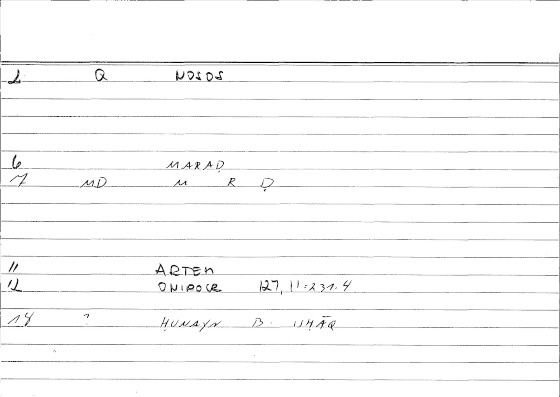 1 Q NOSOS
6 MARAḌ
7 MD M R Ḍ
11 ARTEM
12 ONIROCR 127, 11-231.4
14 ? ḤUNAYN B. ISḤĀQ